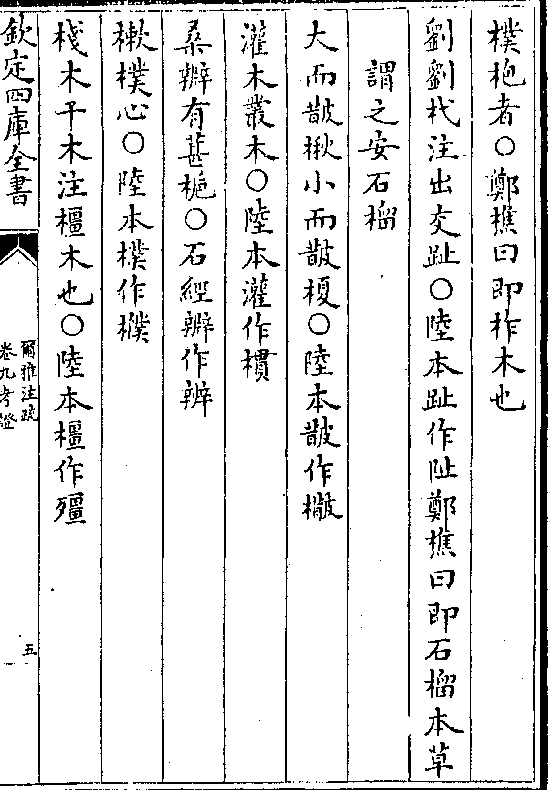 樸枹者○鄭樵曰即柞木也
劉劉杙注出交趾○陸本趾作阯鄭樵曰即石榴本草
謂之安石榴
大而皵楸小而皵榎○陸本皵作㯙
灌木叢木○陸本灌作樌
桑辦有葚梔○石經辦作辨
樕樸心○陸本樸作樸
棧木干木注橿木也○陸本橿作殭
欽定四庫全書
爾雅注疏
卷九考證
五